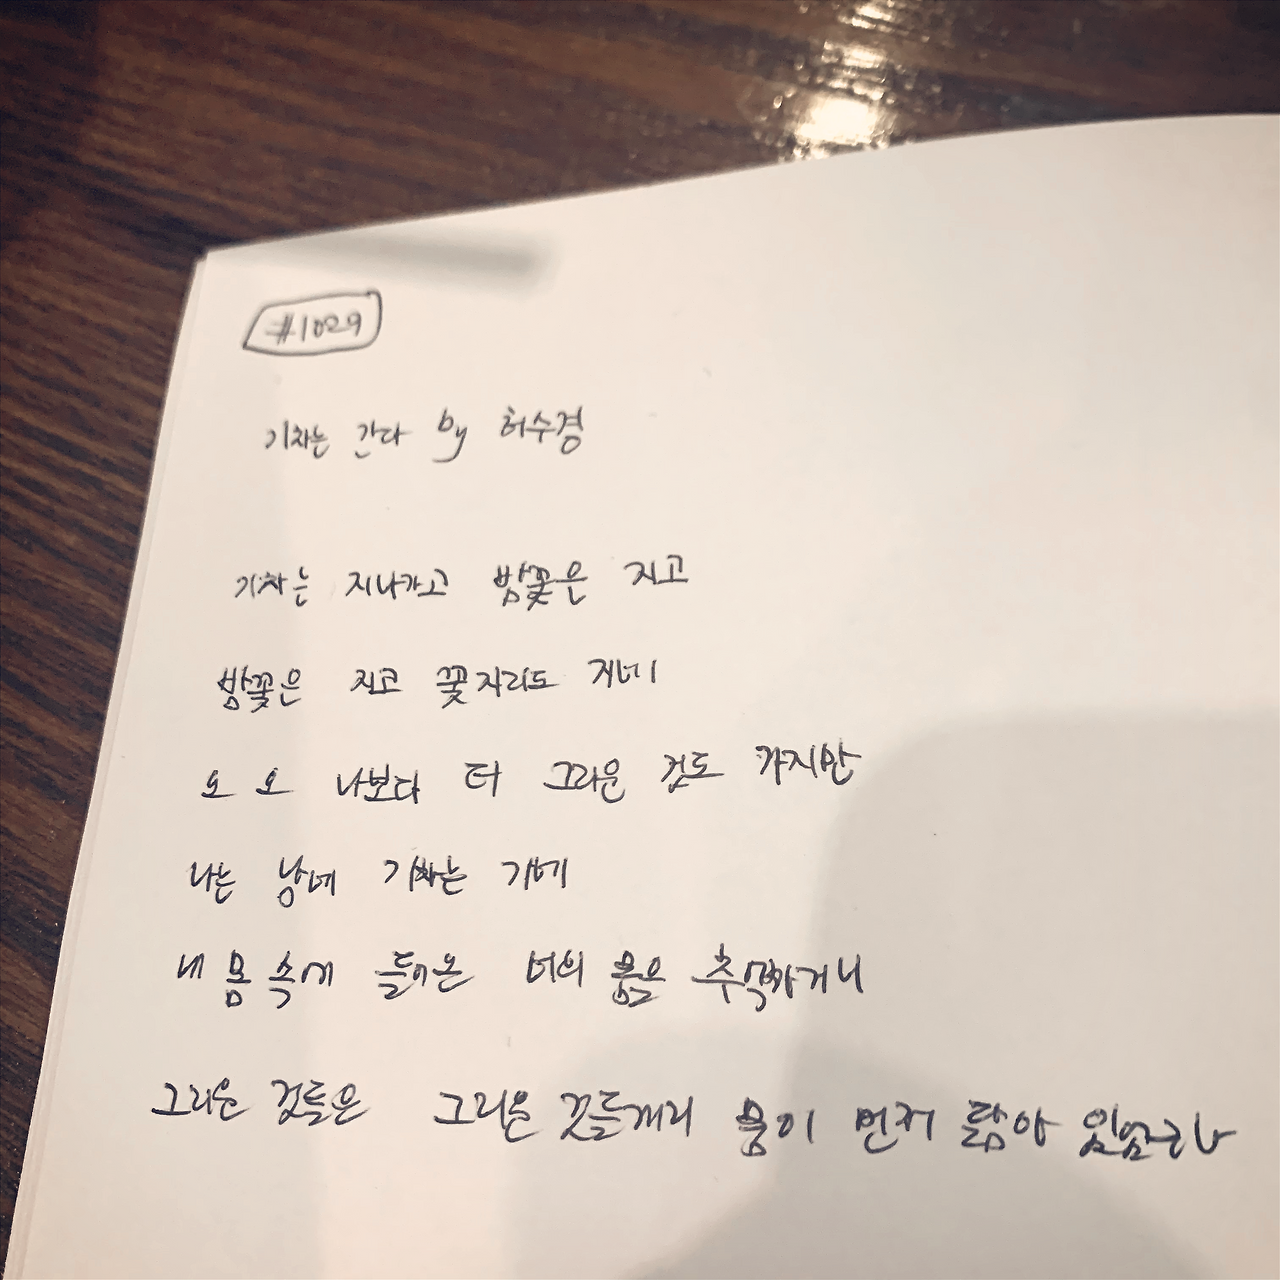 #1029
기차는 간다 by 허수경
기차는 지나가고 밤꽃은 지고
밤꽃은 지고 꽃자리도 지네
오 오 나보다 더 그리운 것도 가지만
나는 남네 기차는 가네
내 몸 속에 들어온 너의 몸을 추억하거니
그리운 것들은 그리운 것들끼리 몸이 먼저 닮아 있었구나